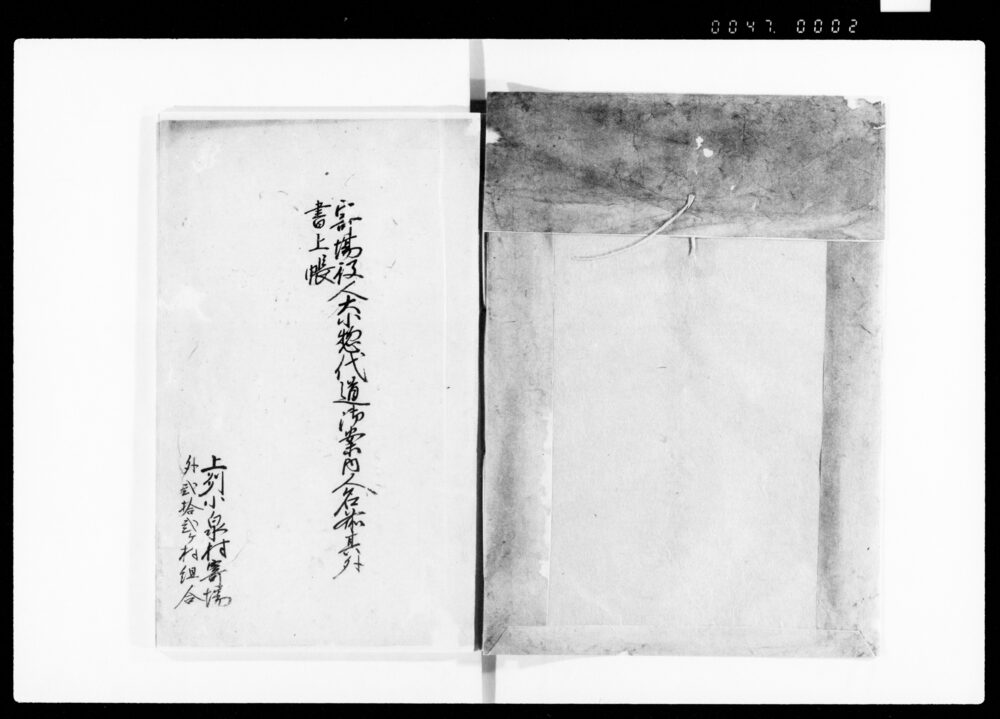 0047. 0002
寄場役人大小惣代道御案内人名前其外
書上帳
上州小泉村寄場
外弐拾弐ヶ村組合